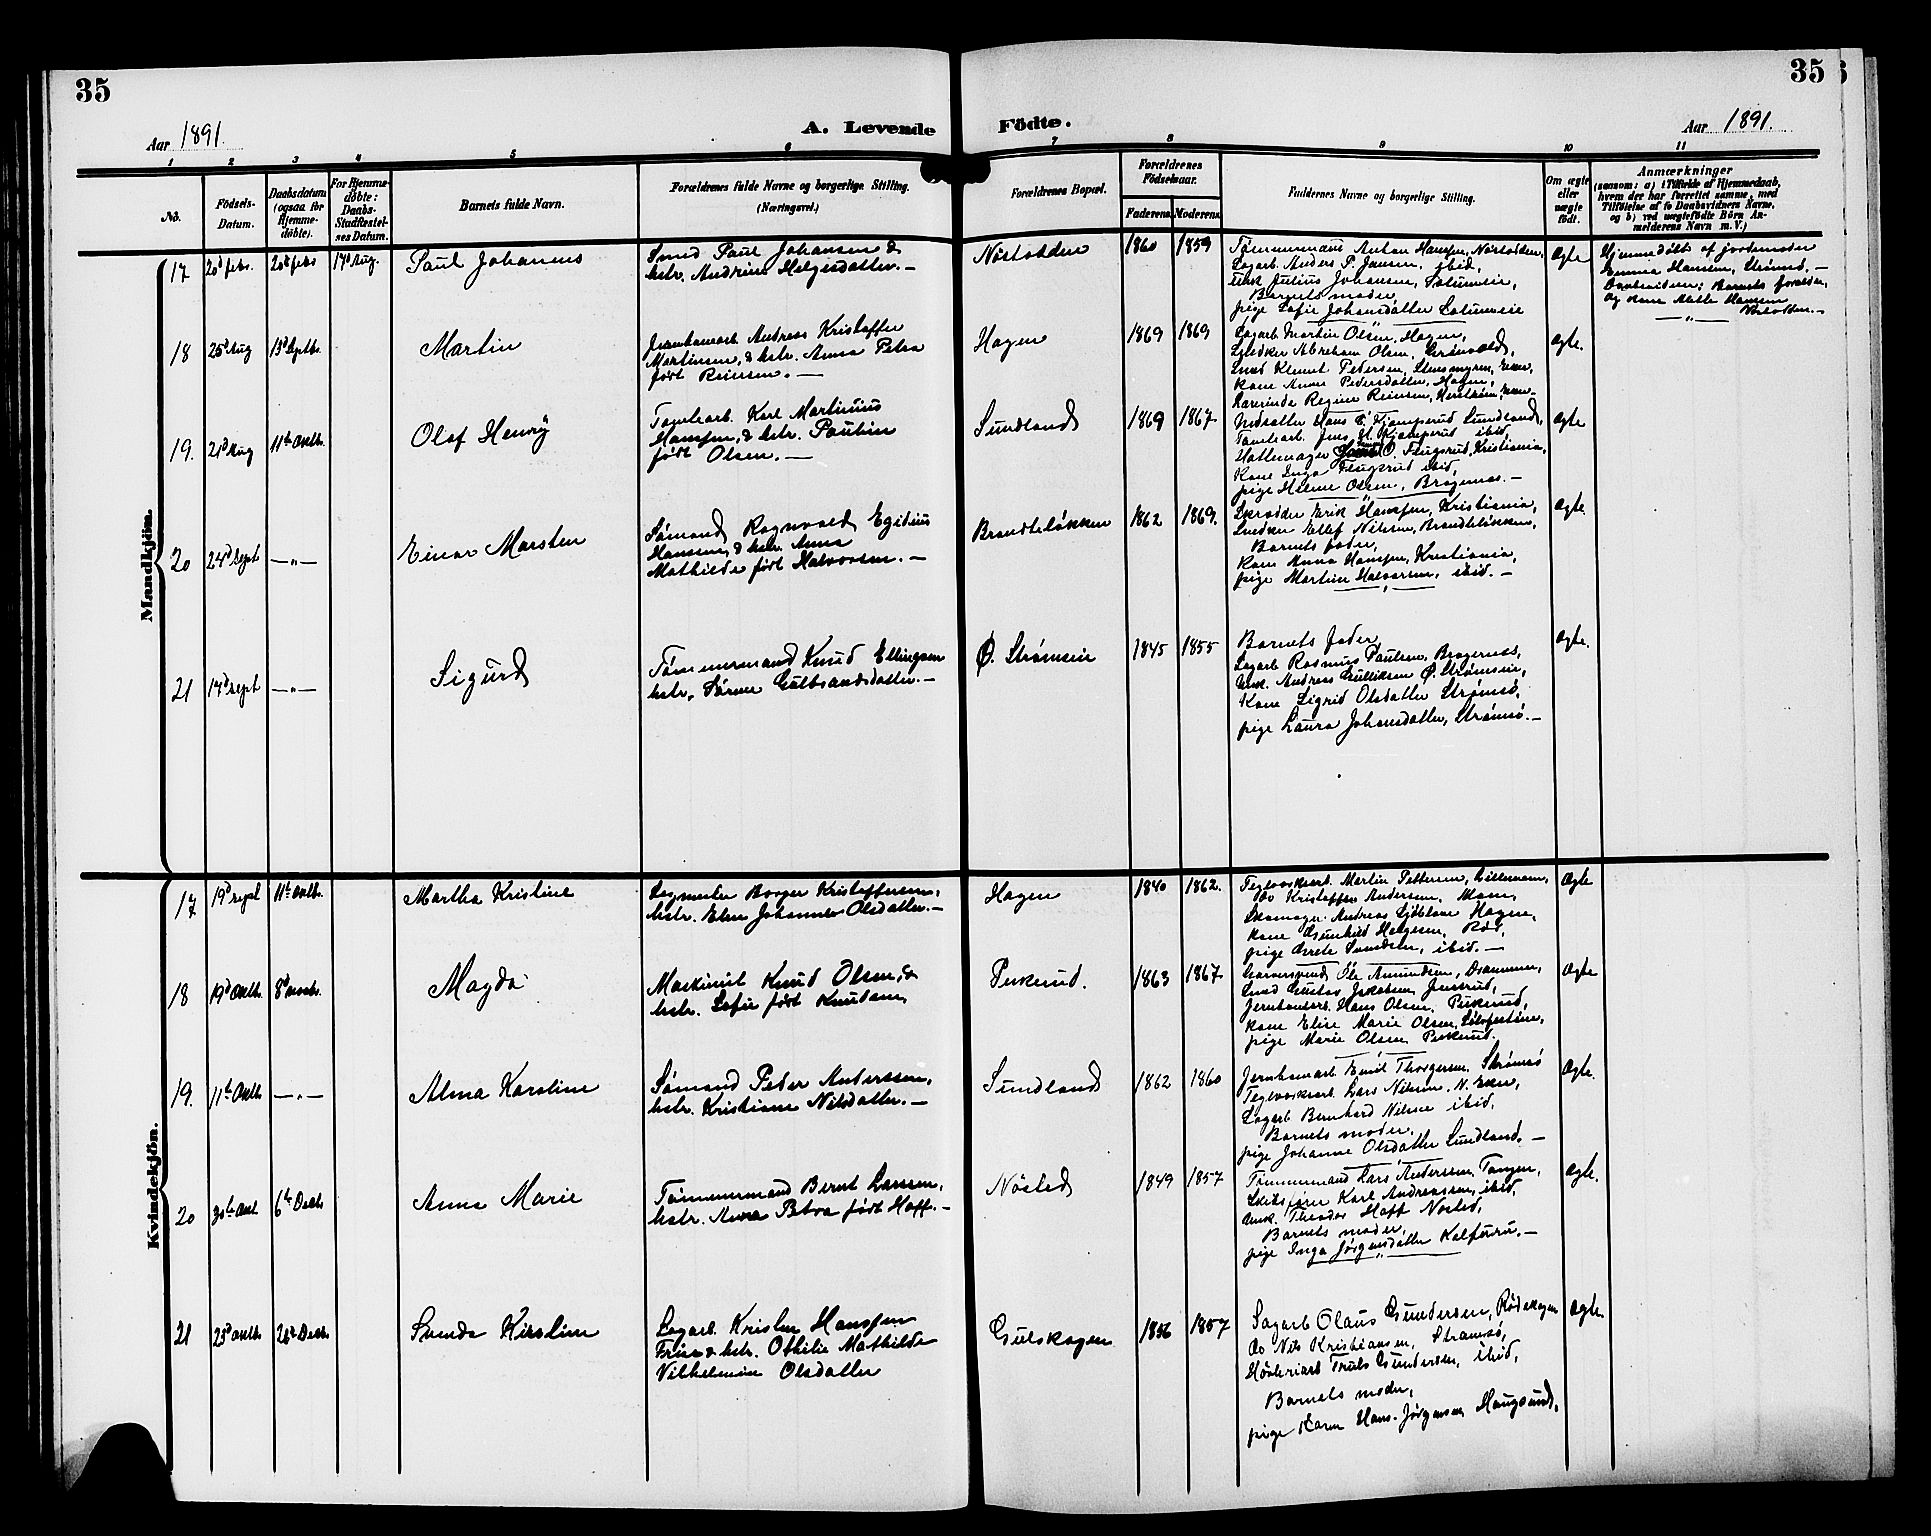 35
35
Aar 1891.
A. Levende
Födte.
Aar 1891.
1 2 3 4 5 6 7 8 9 10 11
No.
Födsels-
Datum.
Daabsdatum
(ogsaa for
Hjemme-
döbte).
For Hjemme-
döbte:
Daabs-
Stadfæstel-
ses Datum.
Barnets fulde Navn.
Forældrenes fulde Navne og borgerlige Stilling.
(Næringsvei.)
Forældrenes Bopæl.
Forældrenes
Födselsaar.
Faderens.
Moderens.
Faddernes Navne og borgerlige Stilling.
Om ægte
eller
uægte
født.
Anmærkninger
(saasom: a) i Tilfælde af Hjemmedaab,
hvem der har forrettet samme, med
Tilföielse af to Daabsvidners Navne,
og b) ved uægtefödte Börn An-
melderens Navn m. V.)
Mandkjön.
17 20d febr. 20d febr 17d Aug.
Paul Johannes
Smed Paul Johansen &
hstr. Andrine Helgesdatter. —
Nøstodden
1860 1859
Tømmermand Anton Hansen, Nøstodden,
Sagarb. Anders P. Jansen, ibid,
Julius Johansen,
Barnets moder,
pige Sofie Johansdatter
Ægte
Hjemmedøbt af jordemoder
Emma Hanssen, Strømsø. —
Daabsvidner: Barnets forældre,
og kone Mette Hansen
Nøstodden. —
18 25d Aug 13d Septbr.
Martin
Jernbanearb. Andreas Kristoffer
Martinsen, & hstr. Anna Petra
født Reiersen. —
Hagen
1869 1869
Sagarb Martin Olsen, Hagen,
Snedker Abraham Olsen, Grønvold,
Smed Klemet Pedersen,
kone Anne Pedersdatter, Hagen,
Regine Reiersen,
Ægte.
19. 21d Aug 11te Octbr.
Olaf Henry
Tomtearb. Karl Martinius
Hanssen, & hstr. Pauline
født Olsen. —
Sundland
1869 1867.
Hans Kjæmperud Sundland,
Tomtearb. Jens H. Kjæmperud ibid,
Hattemager O. Flugsrud, Kristiania,
Kone Inga Flugsrud ibid,
pige Helene Olsen, Bragernæs. —
Ægte
20 24d Sept —„—
Einar Marsten
Sømand Ragnvald Egidius
Hanssen, & hstr. Anna
Mathilde født Halvorsen. —
Brandteløkken
1862 1869.
Skrædder Erik Hanssen, Kristiania,
Snedker Ellef Nilsen, Brandteløkken,
Barnets fader,
kone Anna Hanssen, Kristiania,
pige Martine Halvorsen, ibid. —
Ægte.
21 14d sept —„—
Sigurd
Tømmermand Knud Ellingsen
hstr. Sørine Gulbrandsdatter. —
Ø. Strømsein
1845 1855
Barnets fader
Sagarb Rasmus Paulsen, Bragernæs,
Unk. Andreas Gulliksen Ø. Strømsein,
Kone Sigrid Olsdatter Strømsø,
pige Laura Johansdatter, Strømsø. —
Ægte.
Kvindekjön.
17 19d sept 11te Octbr.
Martha Kristine
Sagmester Borger Kristoffersen,
hstr. Elen Johanne Olsdatter. —
Hagen
1840 1862.
Teglverksarb. Martin Pettersen,
do Kristoffer Andersen, Moen,
Skomager Andreas Sjøblom Hagen,
kone Gunhild Helgesen, Rød,
pige Grete Svendsen, ibid. —
Ægte
18 19d Octbr. 8d Novbr.
Magda
Maskinist Knud Olsen, &
hstr. Sofie født Knudsen,
Pukerud.
1863 1867
Ole Amundsen, Drammen,
Smed Gustav Jakobsen,
Jernbanearb. Hans Olsen, Pukerud,
kone Elise Marie Olsen,
pige Marie Olsen Pukerud.
Ægte
19. 11te Octbr —„—
Alma Karoline
Sømand Peder Anderssen,
hstr. Kristiane Nilsdatter. —
Sundland
1862 1860
Jernbanearb Emil Thorgersen, Strømsø
Teglverksarb. Lars Nilsen, N. Eker,
Sagarb Bernhard Nilsen ibid,
Barnets moder,
pige Johanne Olsdatter Sundland. —
Ægte.
20 30te Oct 6te Decbr
Anna Marie
Tømmermand Bernt Larssen,
hstr. Anna Petra født Hoff. —
Nøsted
1849 1857
Tømmermand Lars Anderssen, Tangen,
Skibsfører Karl Andreassen, ibid,
Unk. Theodor Hoff Nøsted,
Barnets moder,
pige Inga Jørgensdatter Kalferu. —
Ægte.
21 23d Octbr. 26d Decbr.
Svenda Kirstine
Sagarb. Kristen Hanssen
Friis & hstr. Othilie Mathilde
Vilhelmine Olsdatter
Gulskogen
1856 1857
Sagarb Olaus Gundersen, Rødskogen
do Nils Kristiansen, Strømsø,
Høvleriarb Truls Gundersen, ibid,
Barnets moder,
pige Karen Hans-Jørgensen Haugsund.
Ægte.